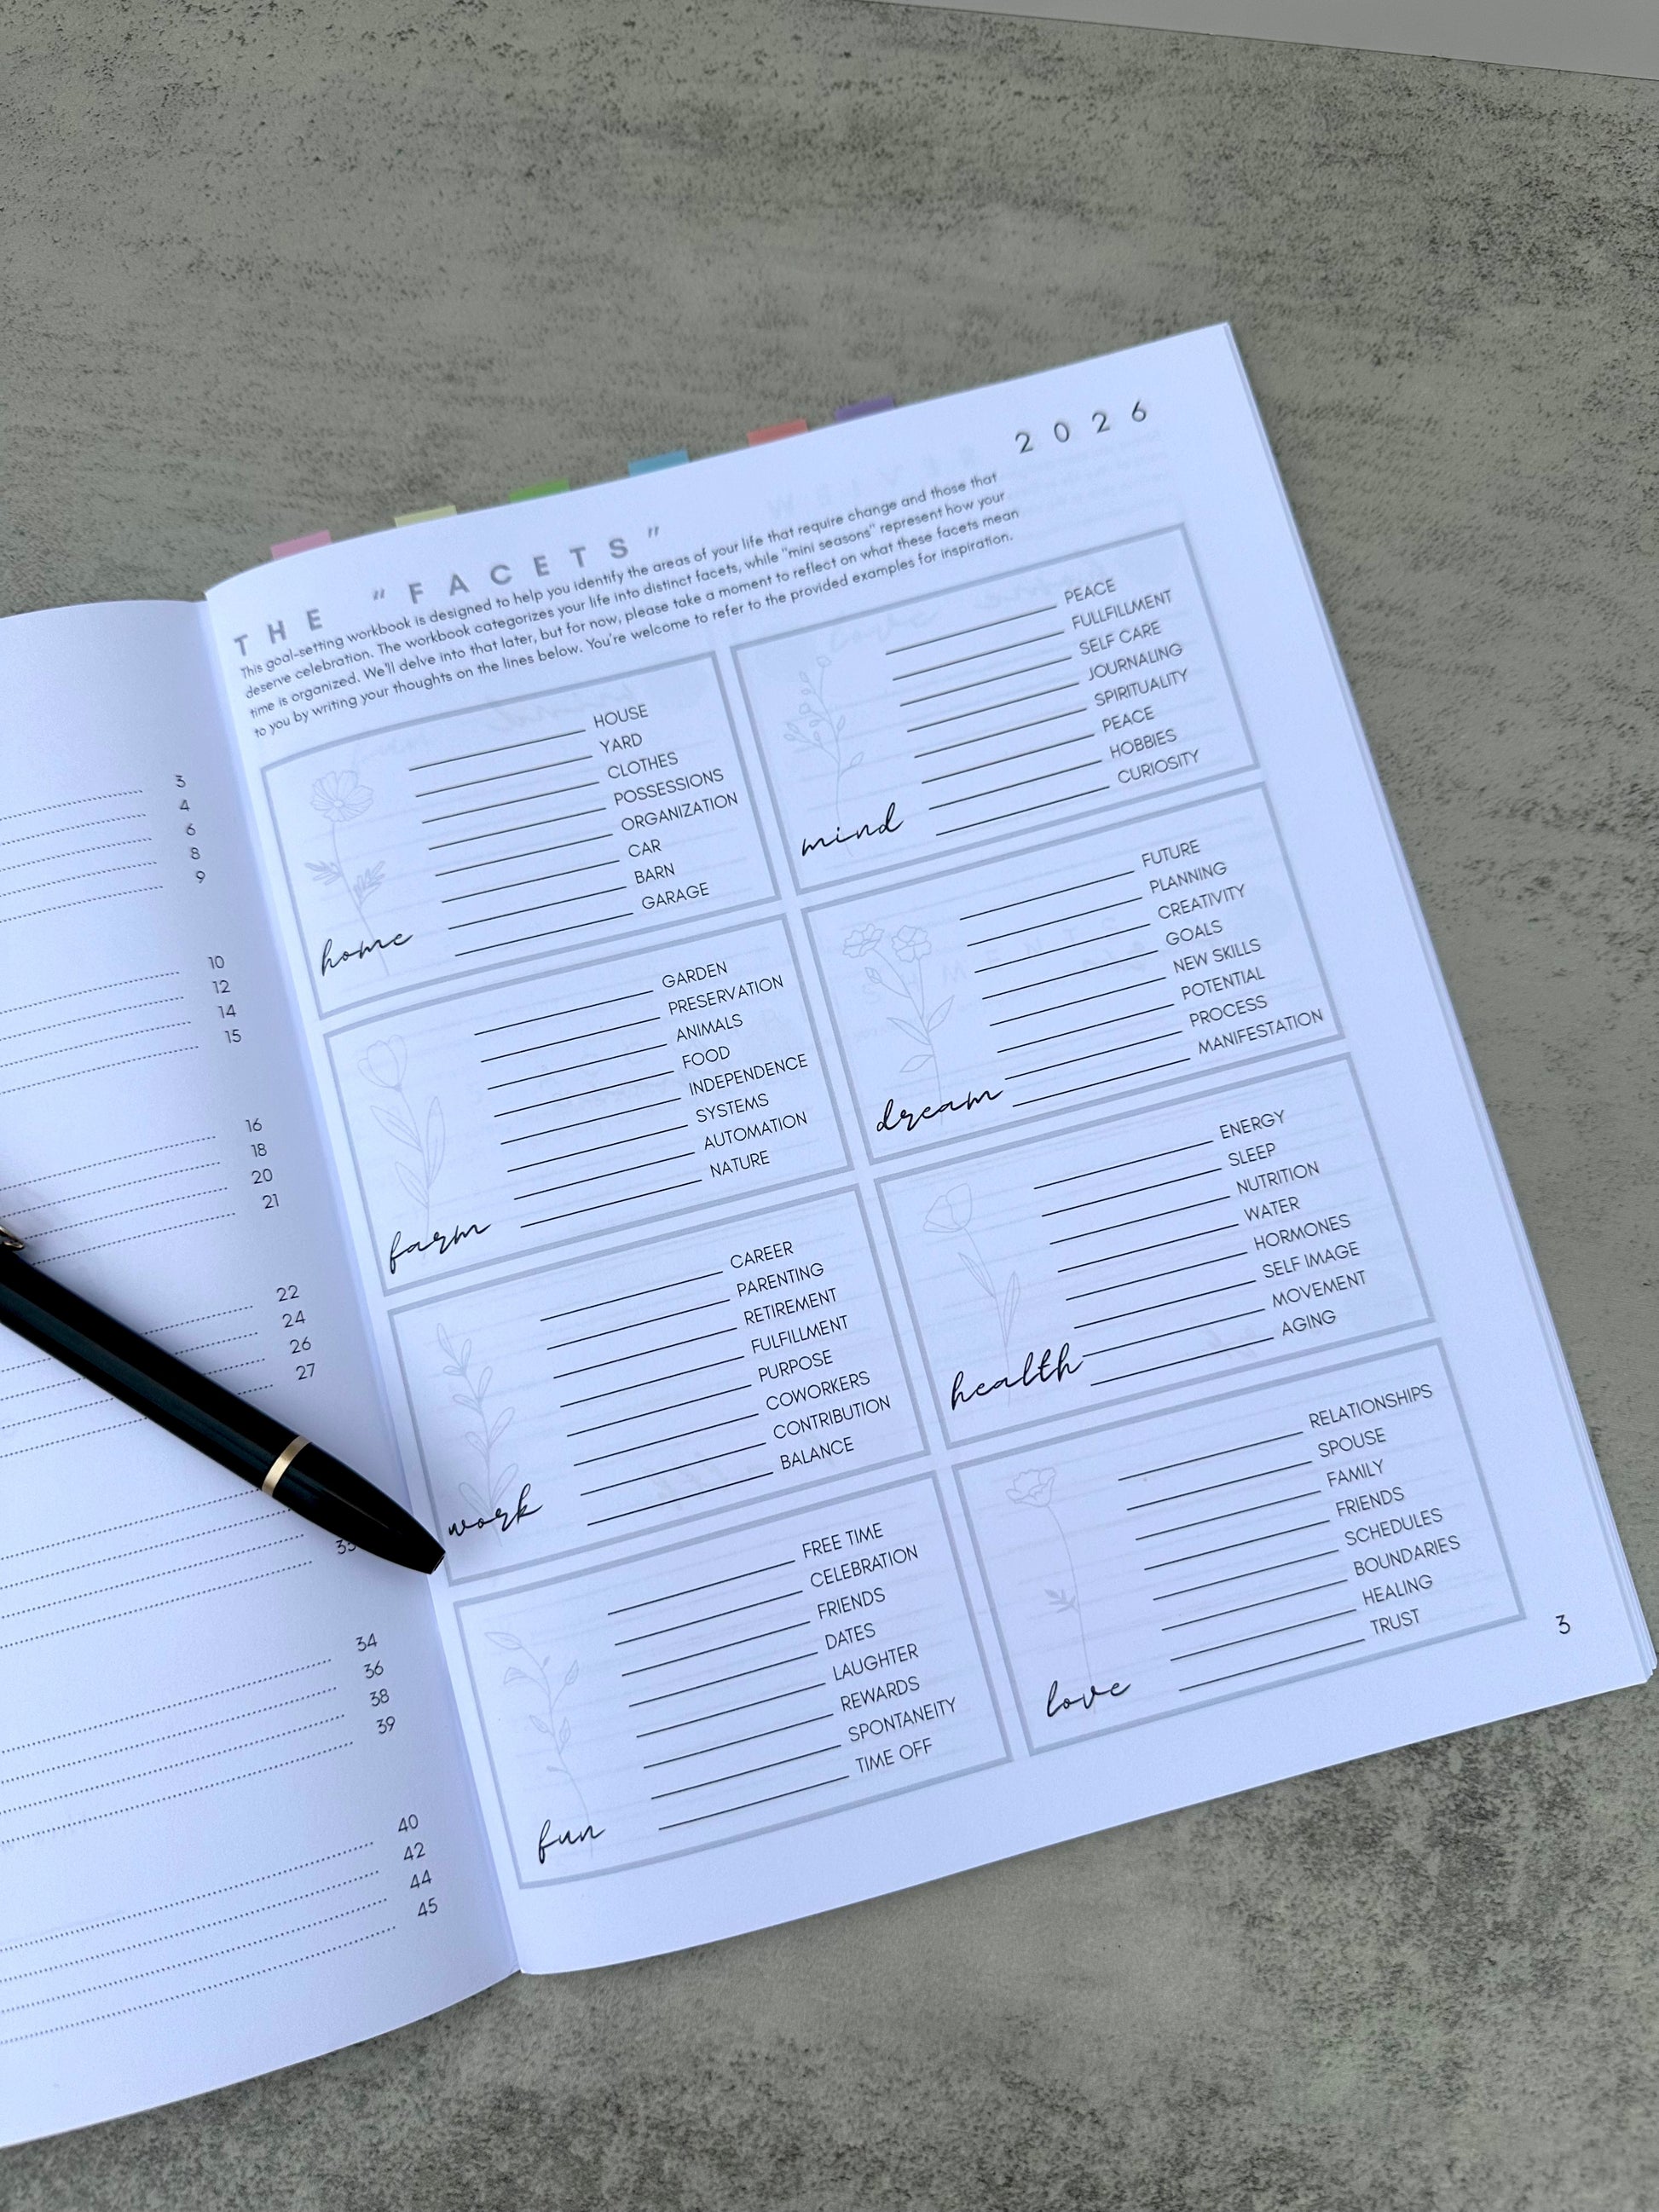 3
4
6
8
9
10
12
14
15
16
18
20
21
22
24
26
27
34
36
38
39
40
42
44
45
2026
THE "FACETS"
This goal-setting workbook is designed to help you identify the areas of your life that require change and those that
deserve celebration. The workbook categorizes your life into distinct facets, while "mini seasons" represent how your
time is organized. We'll delve into that later, but for now, please take a moment to reflect on what these facets mean
to you by writing your thoughts on the lines below. You're welcome to refer to the provided examples for inspiration.
HOUSE
YARD
CLOTHES
POSSESSIONS
ORGANIZATION
CAR
BARN
GARAGE
home
PEACE
FULLFILLMENT
SELF CARE
JOURNALING
SPIRITUALITY
PEACE
HOBBIES
CURIOSITY
mind
GARDEN
PRESERVATION
ANIMALS
FOOD
INDEPENDENCE
SYSTEMS
AUTOMATION
NATURE
farm
FUTURE
PLANNING
CREATIVITY
GOALS
NEW SKILLS
POTENTIAL
PROCESS
MANIFESTATION
dream
CAREER
PARENTING
RETIREMENT
FULFILLMENT
PURPOSE
COWORKERS
CONTRIBUTION
BALANCE
work
ENERGY
SLEEP
NUTRITION
WATER
HORMONES
SELF IMAGE
MOVEMENT
AGING
health
FREE TIME
CELEBRATION
FRIENDS
DATES
LAUGHTER
REWARDS
SPONTANEITY
TIME OFF
fun
RELATIONSHIPS
SPOUSE
FAMILY
FRIENDS
SCHEDULES
BOUNDARIES
HEALING
TRUST
love
3